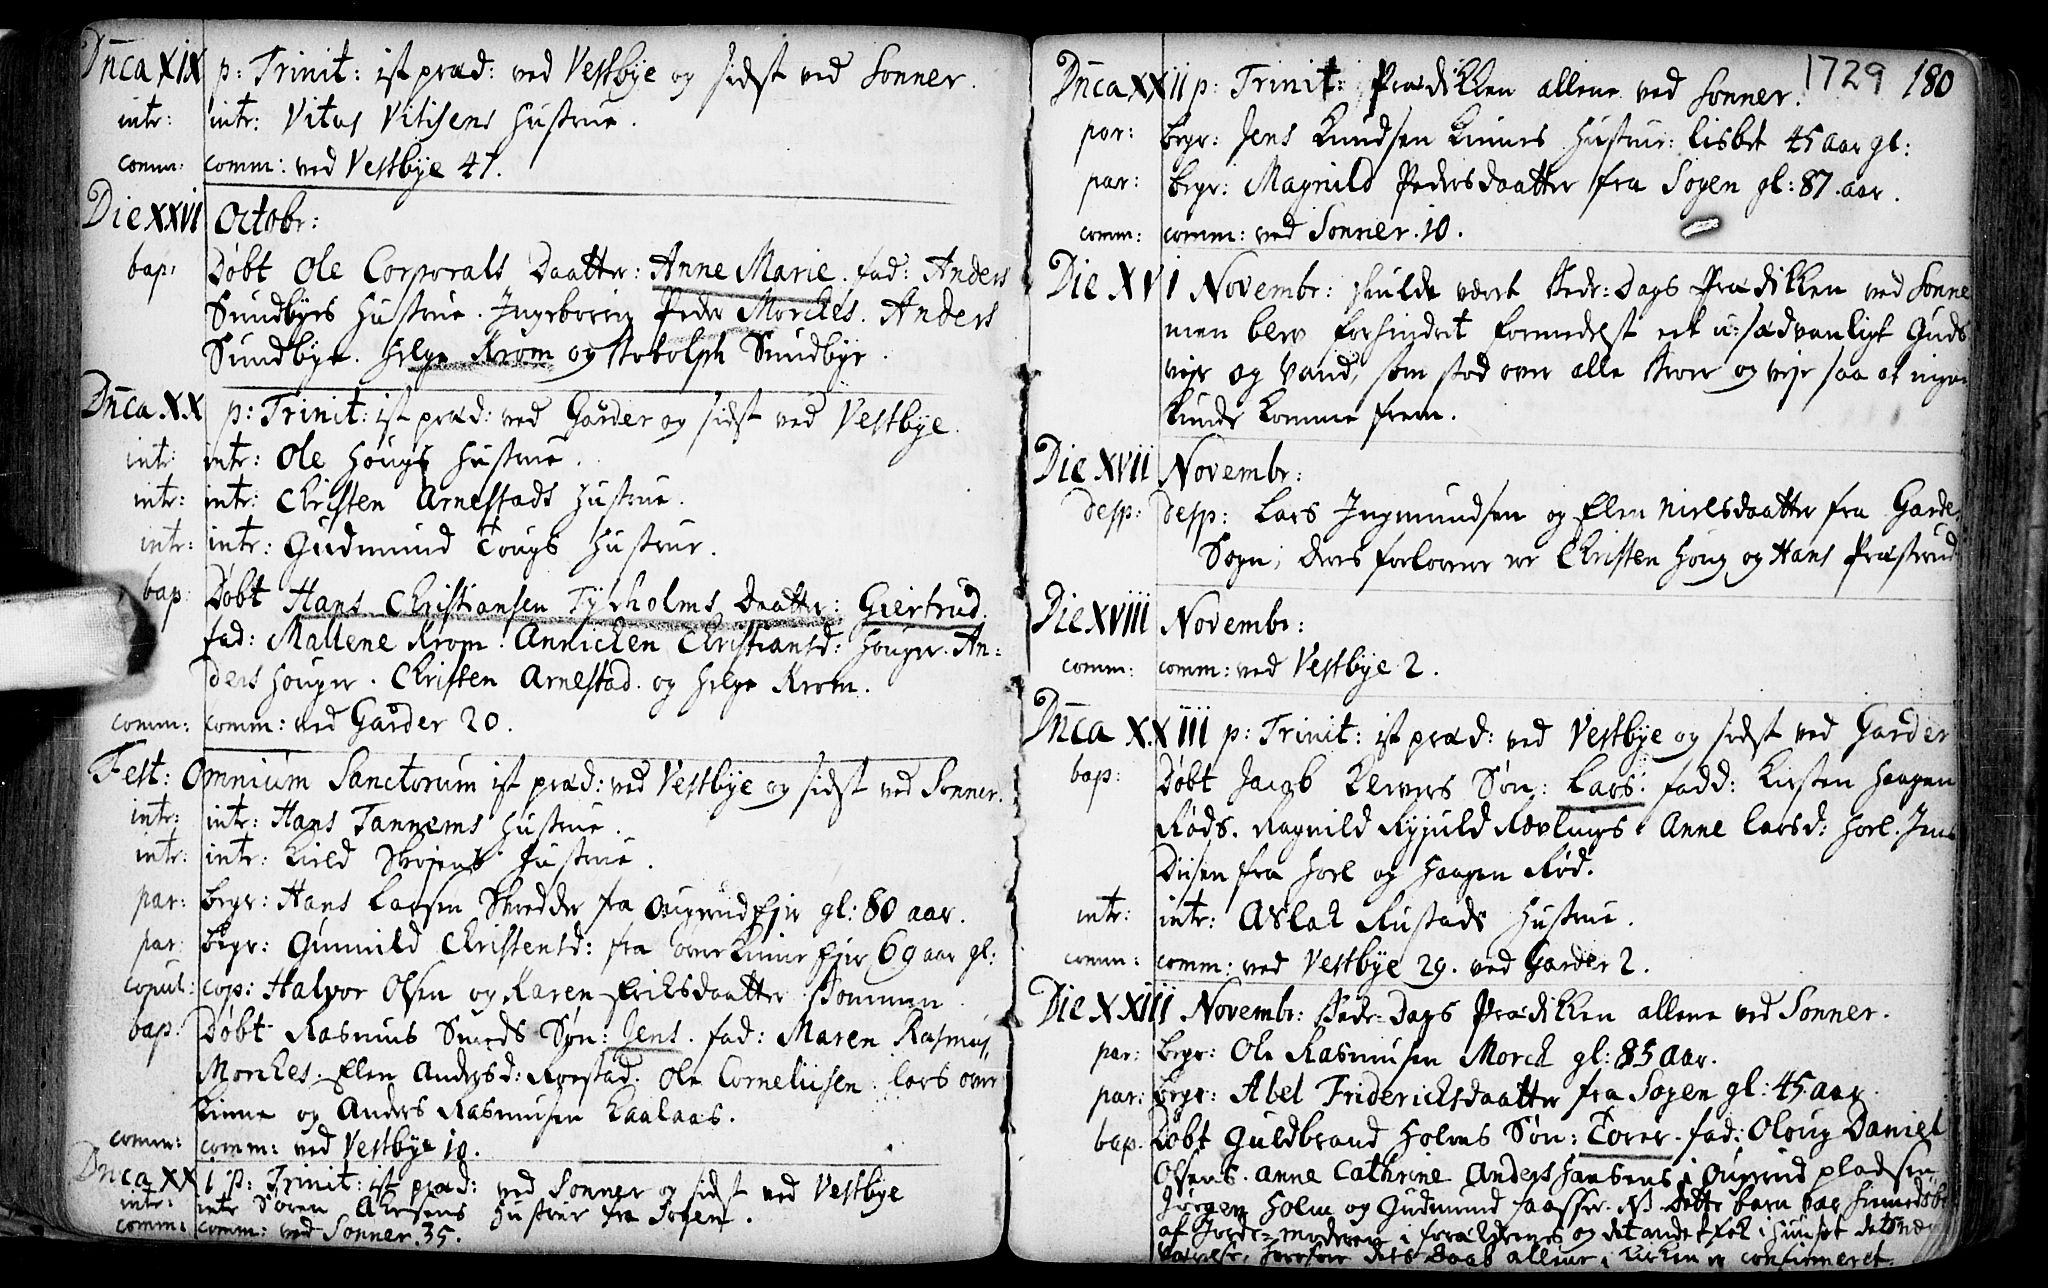 Dn̄ca XIX p: Trinit: ist præd: ved Vestbye og sidst ved Sonner.
intr: intr: Vitus Vitisens Hustrue.
comm: comm: ved Vestbye 47.
Die XXVI Octobr:
bap: Døbt Ole Corporals Daatter: Anne Marie. fad: Anders
Sundbyes Hustrue. Ingeborrig Peder Morckes. Anders
Sundbye. Helge Krom og Sundbye.
Dn̄ca XX p: Trinit: ist præd: ved Garder og sidst ved Vestbye.
intr: intr: Ole Hougs Hustrue.
intr: intr: Christen Arnestads Hustrue.
intr: intr: Gudmund Tougs Hustrue.
bap: Døbt Hans Christiansen Tyrholms Daatter: Giertrud.
fad: Mallene Krom. Annichen Christiansd: Houger. An=
ders Houger. Christen Arnestad. og Helge Krom.
comm: comm: ved Garder 20.
Fest: Omnium Sanctorum ist præd: ved Vestbye og sidst ved Sonner.
intr: intr: Hans Tannems Hustrue.
intr: intr: Kield Hustrue.
par: begr: Hans Larsen Skredder fra gl: 80 aar.
par: begr: Gunnild Christensd: fra over Kinne Eje 69 aar gl:
copul: cop: Halvor Olsen og Karen Eriksdaatter
bap: Døbt Rasmus Smeds Søn: Jens. fad: Maren Rasmus
Morckes. Elen Andersd: Ole Corneliisen. Lars over
Kinne og Anders Rasmusen Kaalaas.
comm: comm: ved Vestbye 10.
Dn̄ca XXI p: Trinit: ist præd: ved Sonner og sidst ved Vestbye
intr: intr Søren Hustrue fra Sogen.
comm: comm: ved Sonner. 35.
1729 180
Dn̄ca XXII p: Trinit: Prædikken allene ved Sonner.
par: begr: Jens Knudsen Kinnes Hustrue: Lisbet 45 aar gl:
par: begr: Magnild Pedersdaatter fra Sogen gl: 87. aar.
comm: comm: ved Sonner. 10.
Die XVI Novembr: skulde været Bede=Dags Prædikken ved Sonne
men blev forhindret formedelst et u=sædvanligt Guds
veyr og Vand, som stod over alle Broer og veje saa at ingen
kunde komme frem.
Die XVII Novembr:
desp: desp: Lars Ingmundsen og Elen Nielsdaatter fra Garde
Sogn; deres forlovere er Christen Houg og Hans Præsterud
Die XVIII Novembr:
comm: comm: ved Vestbye 2.
Dn̄ca XXIII p: Trinit: ist præd: ved Vestbye og sidst ved Garder
bap: Døbt Jacob Søn: Lars. fadd: Kirsten Haagen
Røds. Ragnild Anne Larsd: Horl.
fra Horl og Haagen Rød.
intr: intr: Aslak Rustads Hustrue.
comm: comm: ved Vestbye 29. ved Garder 2.
Die XXIII Novembr: Bede=Dags Prædikken allene ved Sonner.
par: begr: Ole Rasmusen Morck gl: 85 aar.
par: begr: Abel Fridericksdaatter fra Sogen gl: 45 aar
bap. Døbt Guldbrand Holms Søn: Torer. fad: Oloug Daniel
Olsens. Anne Cathrine Anders Hansens i pladsen
Jørgen Holm og Gudmund NB Dette barn var hiemmedøbt
af Jorde=moderen i forældrenes og det andet folk i Huuset
derfore dets Daab allene i Kirken er confirmeret.